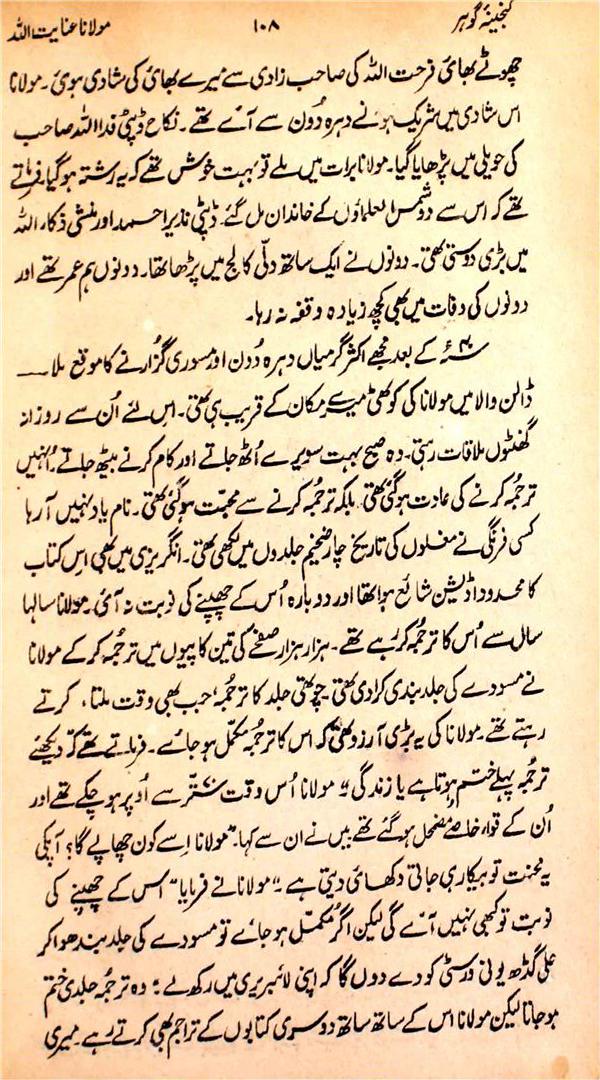 گنجینۂ گوہر ۱۰۸ مولانا عنایت اللہ
چھوٹے بھائی فرحت اللہ کی صاحب زادی سے میرے بھائی کی شادی ہوئی۔ مولانا
اس شادی میں شریک ہونے دہرہ دُون سے آئے تھے۔ نکاح ڈپٹی فدا اللہ صاحب
کی حویلی میں پڑھایا گیا۔ مولانا برات میں ملے تو بہت خوش تھے کہ یہ رشتہ ہو گیا۔ فرماتے
تھے کہ اس سے دو شمس العلماؤں کے خاندان مل گئے۔ ڈپٹی نذیر احمد اور منشی ذکاء اللہ
میں بڑی دوستی تھی۔ دونوں نے ایک ساتھ دلّی کالج میں پڑھا تھا۔ دونوں ہم عمر تھے اور
دونوں کی وفات میں بھی کچھ زیادہ وقفہ نہ رہا۔
۴۰ء کے بعد مجھے اکثر گرمیاں دہرہ دُون اور مسوری گزارنے کا موقع ملا ـــ
ڈالن والا میں مولانا کی کوٹھی میرے مکان کے قریب ہی تھی۔ اس لئے اُن سے روزانہ
گھنٹوں ملاقات رہتی۔ وہ صبح بہت سویرے اُٹھ جاتے اور کام کرنے بیٹھ جاتے۔ اُنہیں
ترجمہ کرنے کی عادت ہو گئی تھی بلکہ ترجمہ کرنے سے محبّت ہو گئی تھی۔ نام یاد نہیں آ رہا
کسی فرنگی نے مغلوں کی تاریخ چار ضخیم جلدوں میں لکھی تھی۔ انگریزی میں بھی اس کتاب
کا محدود اڈیشن شائع ہوا تھا اور دوبارہ اُس کے چھپنے کی نوبت نہ آئی۔ مولانا سالہا
سال سے اُس کا ترجمہ کر رہے تھے۔ ہزار ہزار صفحے کی تین کاپیوں میں ترجمہ کر کے مولانا
نے مسودے کی جلد بندی کرا دی تھی۔ چوتھی جلد کا ترجمہ، جب بھی وقت ملتا، کرتے
رہتے تھے۔ مولانا کی یہ بڑی آرزو تھی کہ اس کا ترجمہ مکمّل ہو جائے۔ فرماتے تھے کہ "دیکھئے
ترجمہ پہلے ختم ہوتا ہے یا زندگی"۔ مولانا اُس وقت ستّر سے اُوپر ہو چکے تھے اور
اُن کے قواء خاصے مضمحل ہو گئے تھے میں نے ان سے کہا۔ "مولانا اِسے کون چھاپے گا؟ آپ کی
یہ محنت تو بیکار ہی جاتی دکھائی دیتی ہے۔" مولانا نے فرمایا "اس کے چھپنے کی
نوبت تو کبھی نہیں آئے گی لیکن اگر مُکمّل ہو جائے تو مسودے کی جلد بندھوا کر
علی گڈھ یونی ورسٹی کو دے دوں گا کہ اپنی لائبریری میں رکھ لے"۔ وہ ترجمہ جلدی ختم
ہو جاتا لیکن مولانا اس کے ساتھ ساتھ دوسری کتابوں کے تراجم بھی کرتے رہے۔ میری